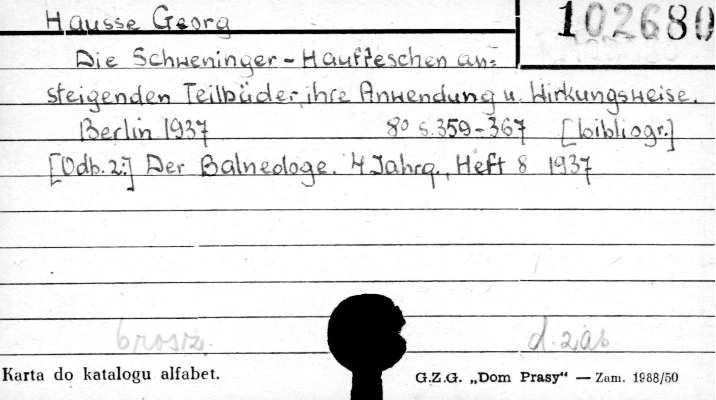 Hausse Georg
102680
Die Schweninger-Hauffeschen an=
steigenden Teilbäder, ihre Anwendung u. Wirkungsweise.
Berlin 1937 8° s.359-367 [bibliogr.]
[Odb. z:] Der Balneologe. 4 Jahrg., Heft 8 1937
brosz. d. zas.
Karta do katalogu alfabet. G.Z.G. „Dom Prasy“ — Zam. 1988/50